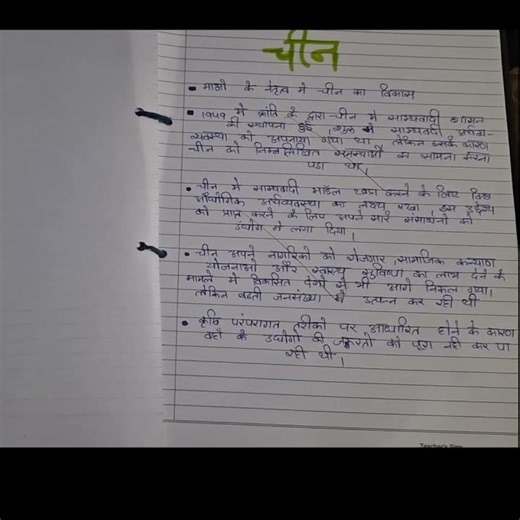 चीन
• माओ के नेतृत्व मे चीन का विकास
• 1949 मे क्रांति के द्वारा चीन मे साम्यवादी शासन
की स्थापना हुई। शुरू मे साम्यवादी अर्थव्-
यवस्था को अपनाया गया था लेकिन इसके कारण
चीन को निम्नलिखित समस्याओं का सामना करना
पडा था।
• चीन मे साम्यवादी मॉडल खडा करने के लिए
औधोगिक अर्थव्यवस्था का लक्ष्य रखा। इस उद्देश्य
को प्राप्त करने के लिए अपने सारे संसाधनो को
उधोग मे लगा दिया।
• चीन अपने नागरिको को रोजगार, सामाजिक कल्याण
योजनाओ और स्वास्थ्य सुविधा का लाभ देने के
मामले मे विकसित देशो से भी आगे निकल गया।
लेकिन बढती जनसंख्या उत्पन्न कर रही थी
• कृषि परंपरागत तरीको पर आधारित होने के कारण
वहाँ के उधोगो की जरूरतो को पूरा नही कर पा
रही थी।